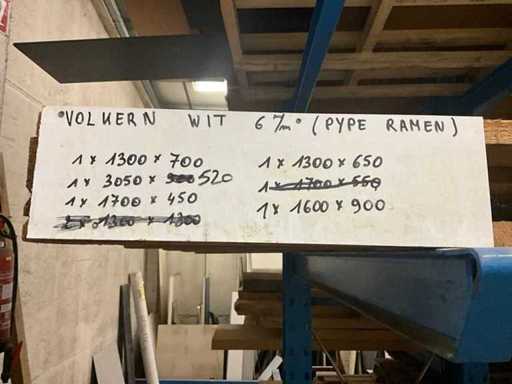 °VOLKERN WIT 6 7/m° (PYPE RAMEN)
1 x 1300 x 700
1 x 3050 x 520
1 x 1700 x 450
1 x 1300 x 1300
1 x 1300 x 650
1 x 1700 x 550
1 x 1600 x 900